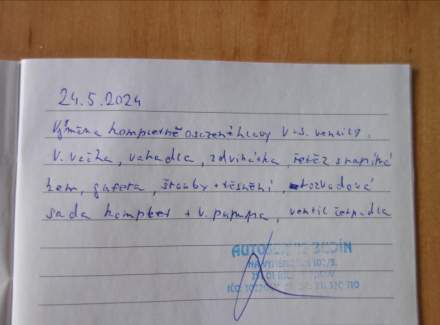 24.5.2024
Výměna kompletně osazené hlavy V+S. ventily,
V. vačka, vahadla, zdvihátka, řetěz s napíná
kem, gufera, šrouby + těsnění, rozvodová
sada komplet + v. pumpa, ventil čerpadla
AUTO